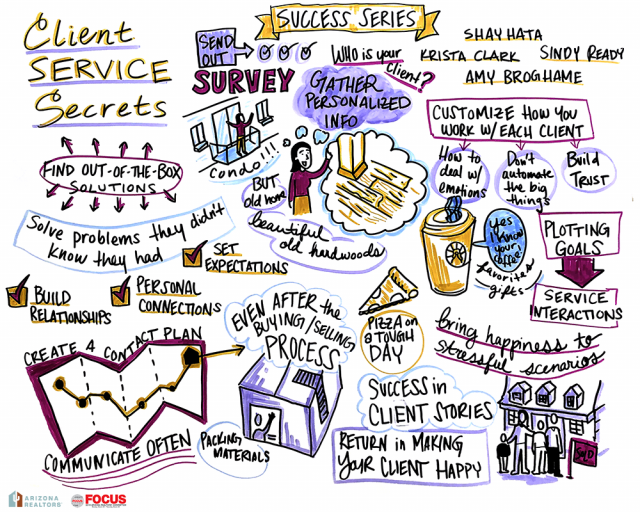 Client
SERVICE
Secrets
SUCCESS SERIES
SEND
OUT
SURVEY
WHO is your
client?
SHAY HATA
KRISTA CLARK
SINDY READY
AMY BROGHAME
GATHER
PERSONALIZED
INFO
condo!!!
BUT
old home
beautiful
old hardwoods
CUSTOMIZE HOW YOU
WORK W/EACH CLIENT
HOW to
deal w/
emotions
Don't
automate
the big
things
Build
TRUST
FIND OUT-OF-THE-BOX
SOLUTIONS
Solve problems they didn't
know they had
SET
EXPECTATIONS
BUILD
RELATIONSHIPS
PERSONAL
CONNECTIONS
yes
I know
your
coffee
favorites
gifts
PLOTTING
GOALS
SERVICE
INTERACTIONS
CREATE A CONTACT PLAN
COMMUNICATE OFTEN
EVEN AFTER the
BUYING/SELLING
PROCESS
PACKING
MATERIALS
PIZZA on
a TOUGH
DAY
bring happiness to
stressful scenarios
SUCCESS in
CLIENT STORIES
RETURN in MAKING
YOUR CLIENT HAPPY
SOLD
ARIZONA
REALTORS
FOCUS